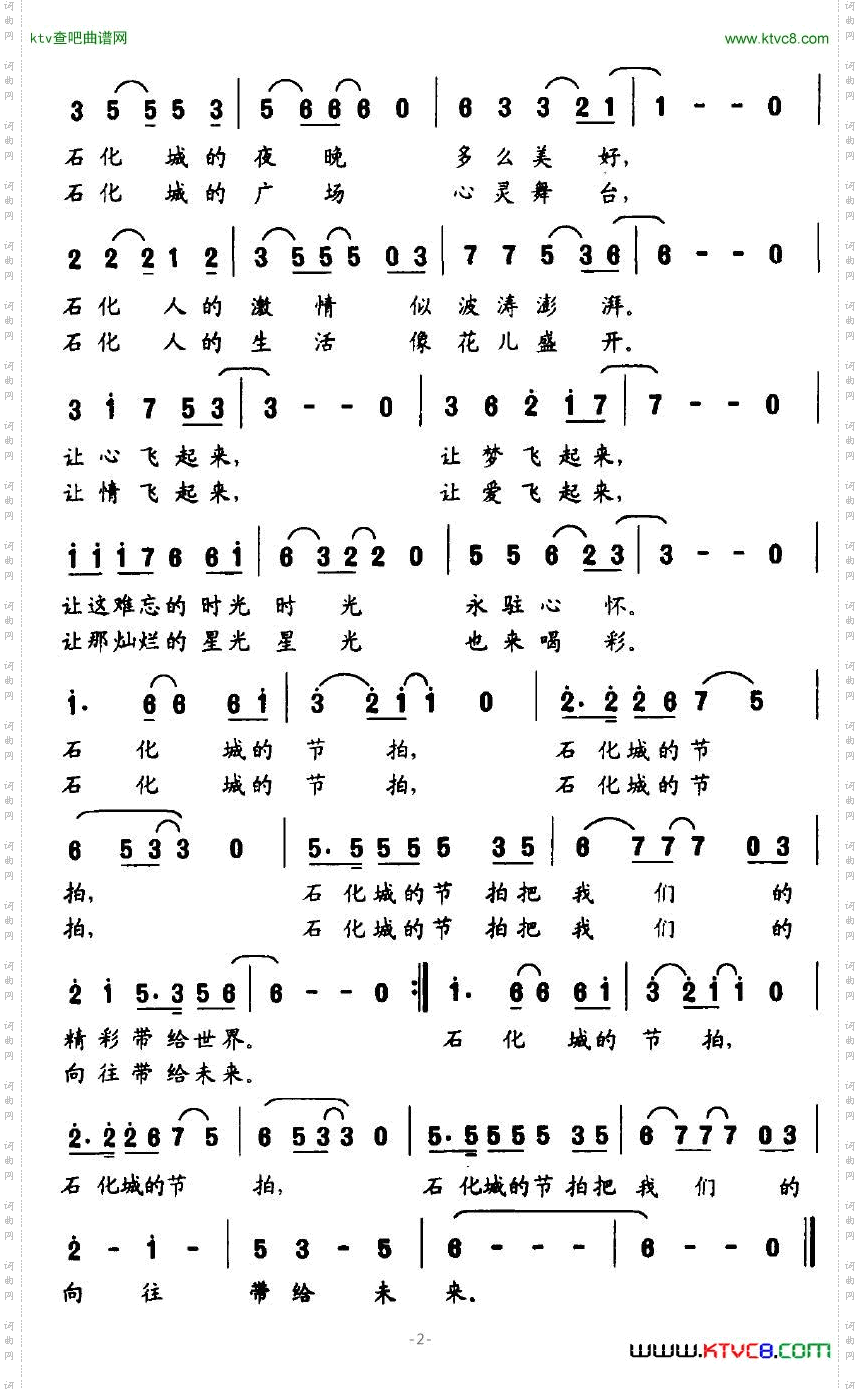 ktv查吧曲谱网 www.ktvc8.com
3 5 5 5 3 | 5 6 6 6 0 | 6 3 3 2 1 | 1 - - 0 |
石化 城的夜 晚 多么美 好,
石化 城的广 场 心灵舞 台,
2 2 2 1 2 | 3 5 5 5 0 3 | 7 7 5 3 6 | 6 - - 0 |
石化 人的激 情 似波涛澎 湃。
石化 人的生 活 像花儿盛 开。
3 1 7 5 3 | 3 - - 0 | 3 6 2 1 7 | 7 - - 0 |
让心飞起来, 让梦飞起来,
让情飞起来, 让爱飞起来,
1 1 1 7 6 6 1 | 6 3 2 2 0 | 5 5 6 2 3 | 3 - - 0 |
让这难忘的时光时 光 永驻心 怀。
让那灿烂的星光星 光 也来喝 彩。
1. 6 6 6 1 | 3 2 1 1 0 | 2. 2 2 6 7 5 |
石 化 城的 节 拍, 石化城的节
石 化 城的 节 拍, 石化城的节
6 5 3 3 0 | 5. 5 5 5 5 3 5 | 6 7 7 7 0 3 |
拍, 石化城的节 拍把 我 们 的
拍, 石化城的节 拍把 我 们 的
2 1 5. 3 5 6 | 6 - - 0 :| 1. 6 6 6 1 | 3 2 1 1 0 |
精彩带给世界。 石 化 城的节 拍,
向往带给未来。
2. 2 2 6 7 5 | 6 5 3 3 0 | 5. 5 5 5 5 3 5 | 6 7 7 7 0 3 |
石化城的节 拍, 石化城的节拍把 我 们 的
2 - 1 - | 5 3 - 5 | 6 - - - | 6 - - 0 ||
向 往 带给 未 来。
-2-
www.KTVC8.com